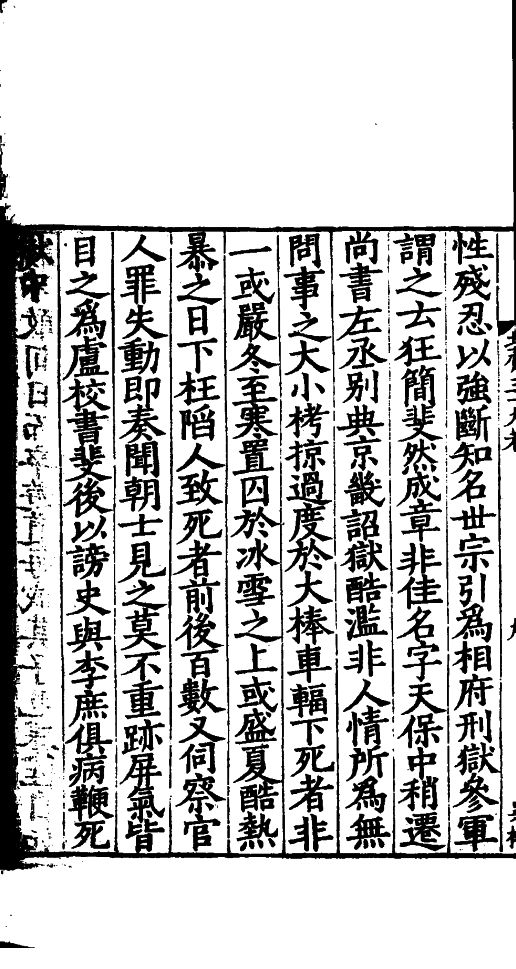 性殘忍以強斷知名世宗引爲相府刑獄參軍
謂之云狂簡斐然成章非佳名字天保中稍遷
尚書左丞别典京畿詔獄酷濫非人情所爲無
問事之大小栲掠過度於大棒車輻下死者非
一或嚴冬至寒置囚於冰雪之上或盛夏酷熱
暴之日下枉陷人致死者前後百數又伺察官
人罪失動即奏聞朝士見之莫不重跡屏氣皆
目之爲盧校書斐後以謗史與李庶俱病鞭死